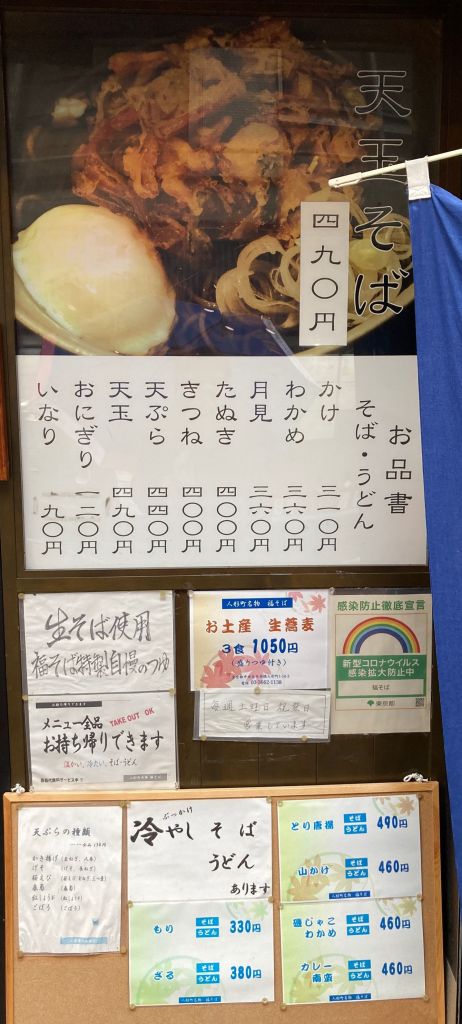 天玉そば
四九〇円
お品書
そば・うどん
かけ 三一〇円
わかめ 三六〇円
月見 三六〇円
たぬき 四〇〇円
きつね 四〇〇円
天ぷら 四四〇円
天玉 四九〇円
おにぎり 一二〇円
いなり 九〇円
生そば使用
福そば特製自慢のつゆ
メニュー全品
TAKE OUT OK
お持ち帰りできます
温かい、冷たい、そば・うどん
人形町名物 福そば
お土産 生蕎麦
3食 1050円
(盛りつゆ付き)
毎週土曜日祝祭日
営業しています
感染防止徹底宣言
新型コロナウイルス
感染拡大防止中
福そば
東京都
天ぷらの種類
かき揚げ
げそ
桜えび
春菊
紅しょうが
ごぼう
(ごぼう)
ぶっかけ
冷やし そば
うどん
あります
もり そば うどん 330円
ざる そば うどん 380円
人形町名物 福そば
とり唐揚 そば うどん 490円
山かけ そば うどん 460円
磯じゃこ
わかめ そば うどん 460円
カレー
南蛮 そば うどん 460円
人形町名物 福そば